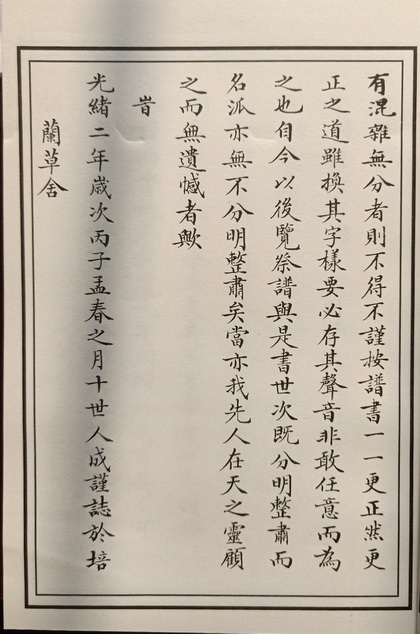 有混雜無分者則不得不謹按譜書一一更正然更
正之道雖換其字樣要必存其聲音非敢任意而為
之也自今以後覽祭譜與是書世次既分明整肅而
名派亦無不分明整肅矣當亦我先人在天之靈顧
之而無遺憾者歟
旹
光緒二年歲次丙子孟春之月十世人成謹誌於培
蘭草舍